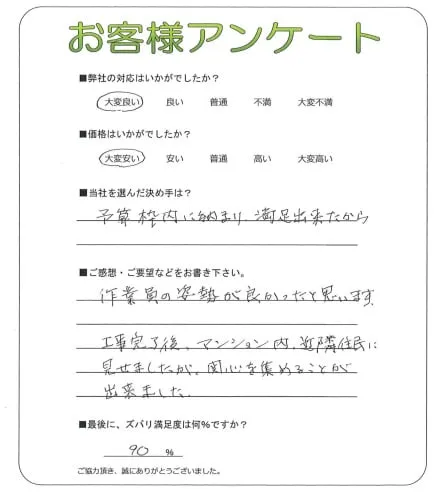 お客様アンケート
■弊社の対応はいかがでしたか？
大変良い 良い 普通 不満 大変不満
■価格はいかがでしたか？
大変安い 安い 普通 高い 大変高い
■当社を選んだ決め手は？
予算枠内に納まり、満足出来たから
■ご感想・ご要望などをお書き下さい。
作業員の姿勢が良かったと思います
工事完了後、マンション内、近隣住民に
見せましたが、関心を集めることが
出来ました。
■最後に、ズバリ満足度は何％ですか？
90 ％
ご協力頂き、誠にありがとうございました。